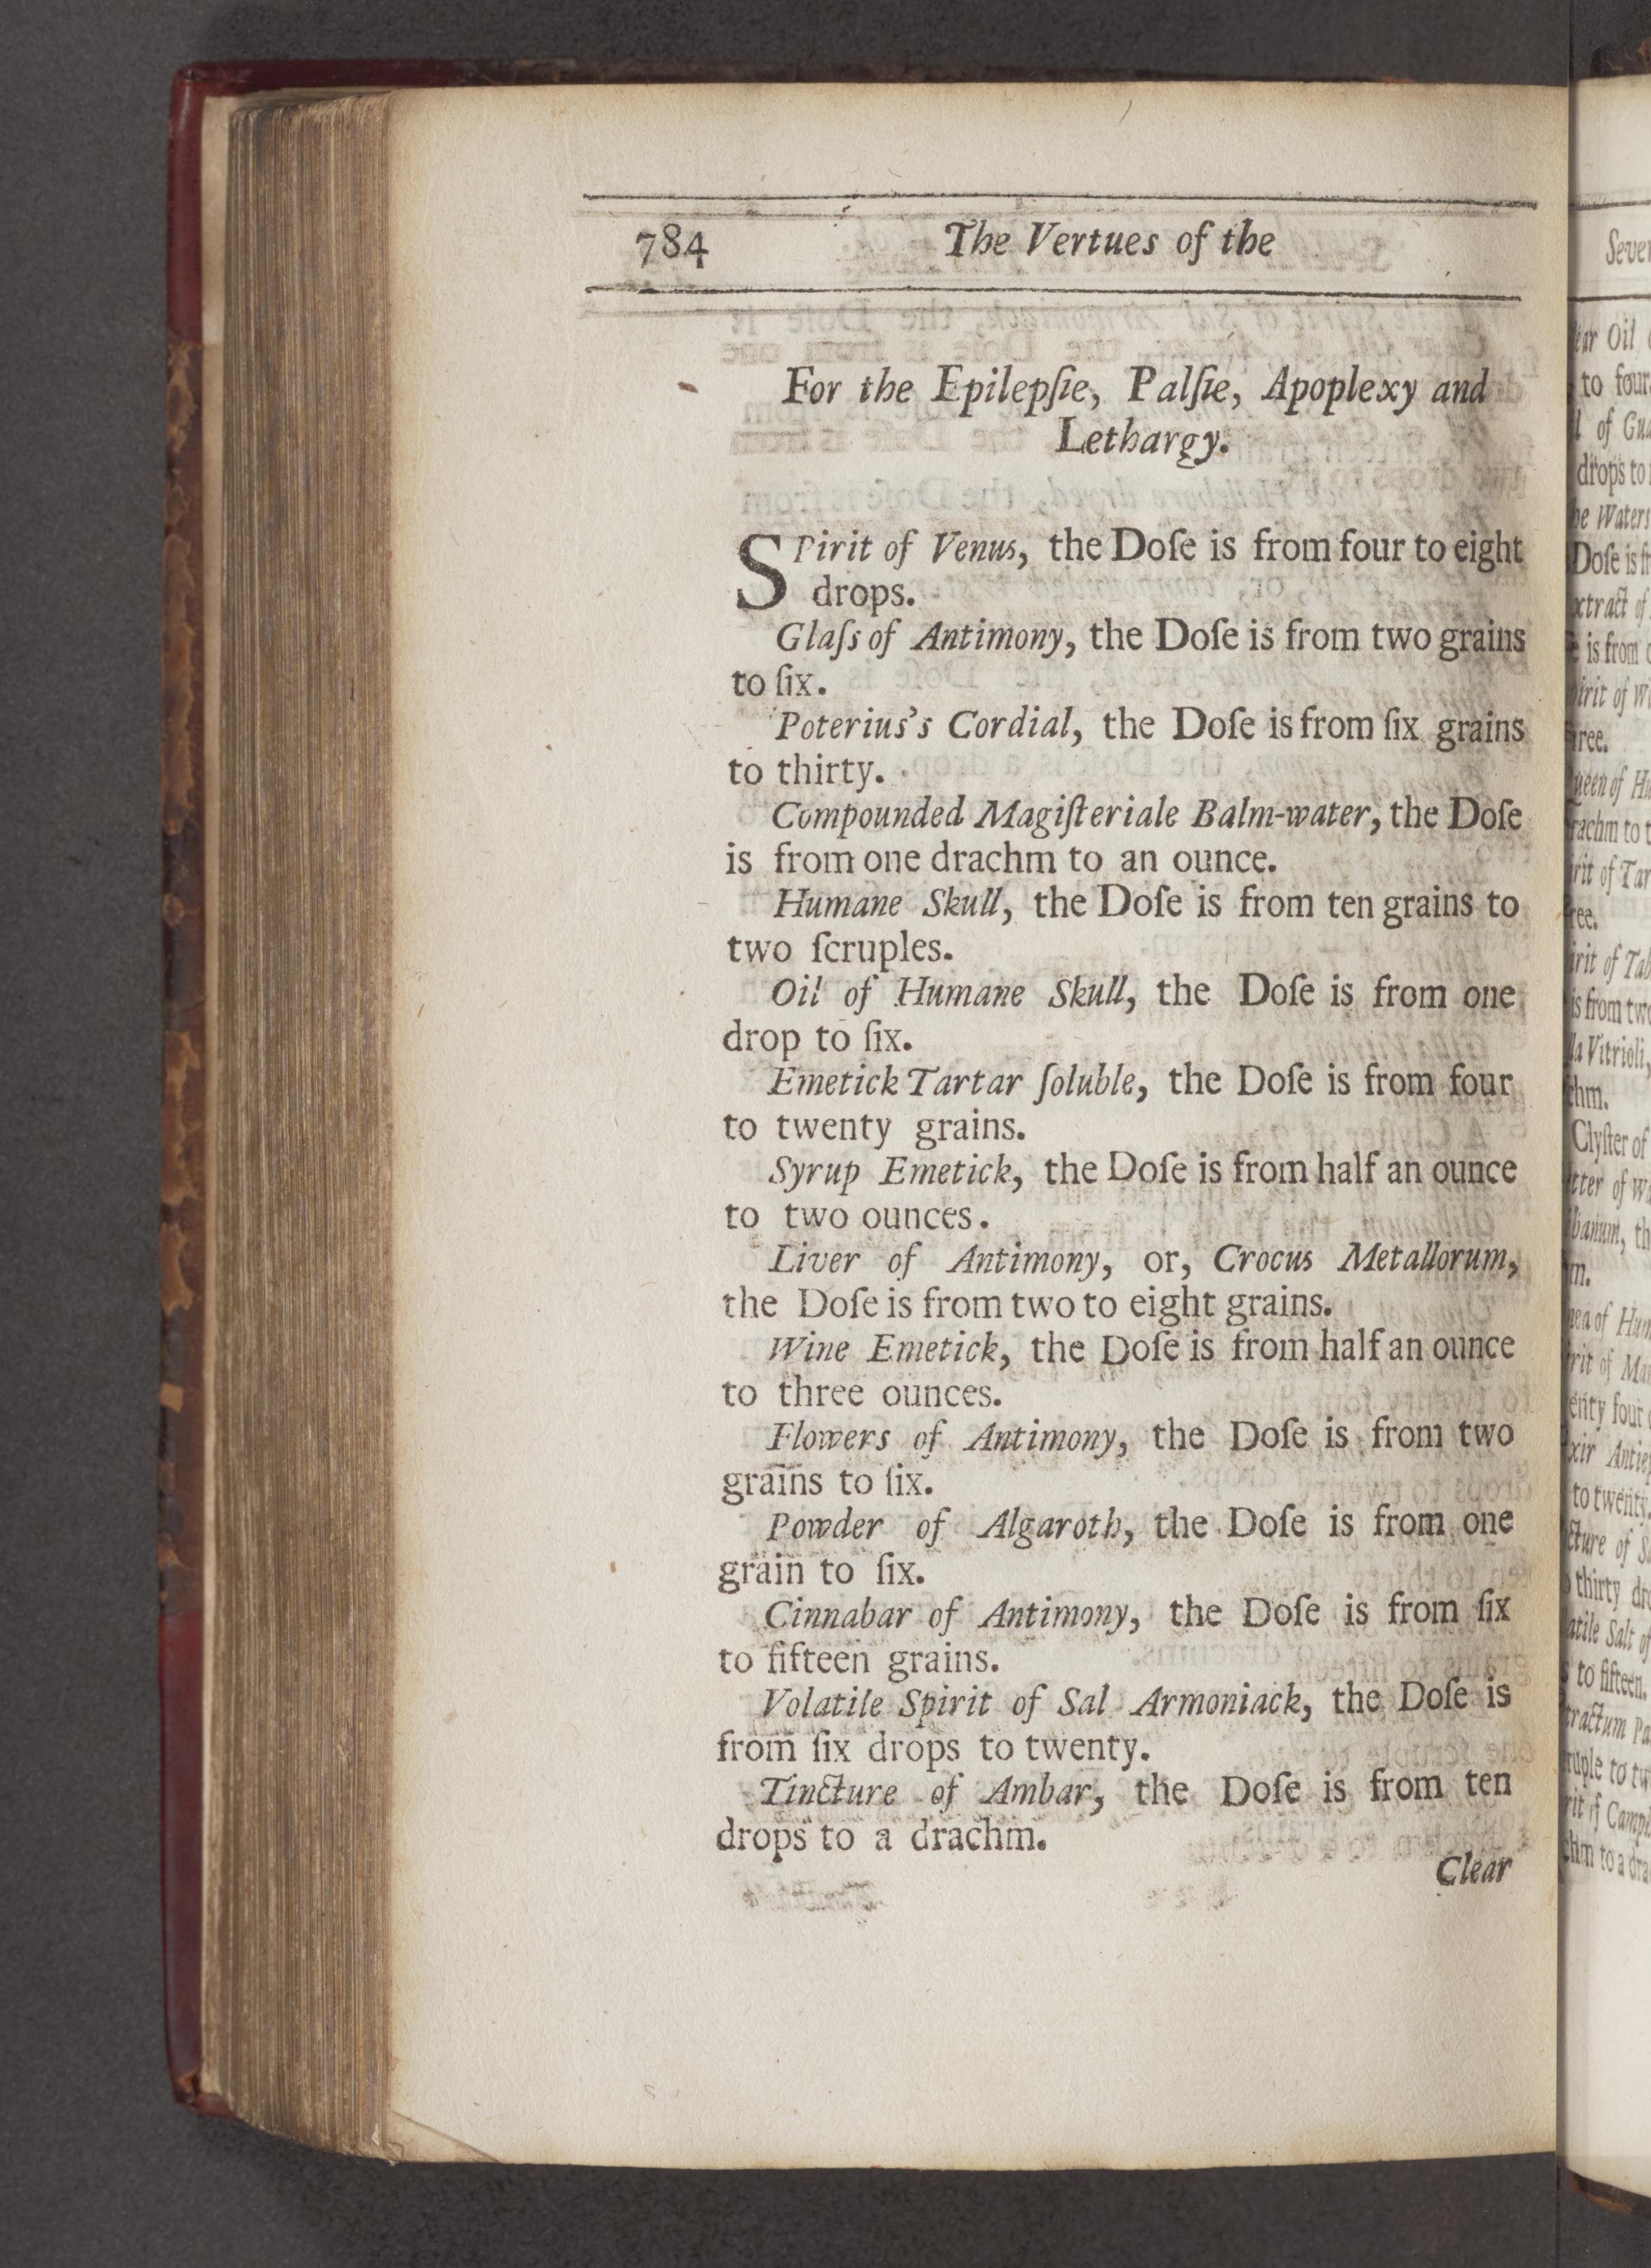 784 The Vertues of the
For the Epilepſie, Palſie, Apoplexy and
Lethargy.
SPirit of Venus, the Doſe is from four to eight
drops.
Glaſs of Antimony, the Doſe is from two grains
to ſix.
Poterius's Cordial, the Doſe is from ſix grains
to thirty.
Compounded Magiſteriale Balm-water, the Doſe
is from one drachm to an ounce.
Humane Skull, the Doſe is from ten grains to
two ſcruples.
Oil of Humane Skull, the Doſe is from one
drop to ſix.
Emetick Tartar ſoluble, the Doſe is from four
to twenty grains.
Syrup Emetick, the Doſe is from half an ounce
to two ounces.
Liver of Antimony, or, Crocus Metallorum,
the Doſe is from two to eight grains.
Wine Emetick, the Doſe is from half an ounce
to three ounces.
Flowers of Antimony, the Doſe is from two
grains to ſix.
Powder of Algaroth, the Doſe is from one
grain to ſix.
Cinnabar of Antimony, the Doſe is from ſix
to fifteen grains.
Volatile Spirit of Sal Armoniack, the Doſe is
from ſix drops to twenty.
Tincture of Ambar, the Doſe is from ten
drops to a drachm.
Clear
Oil
to four
of
drops to
Waters
Doſe is
of
is from
of
of
to
of
of
is from two
Vitrioli,
Clyſter of
of
of
of
four
to twenty.
of
thirty
Salt of
to fifteen.
to
of
to a